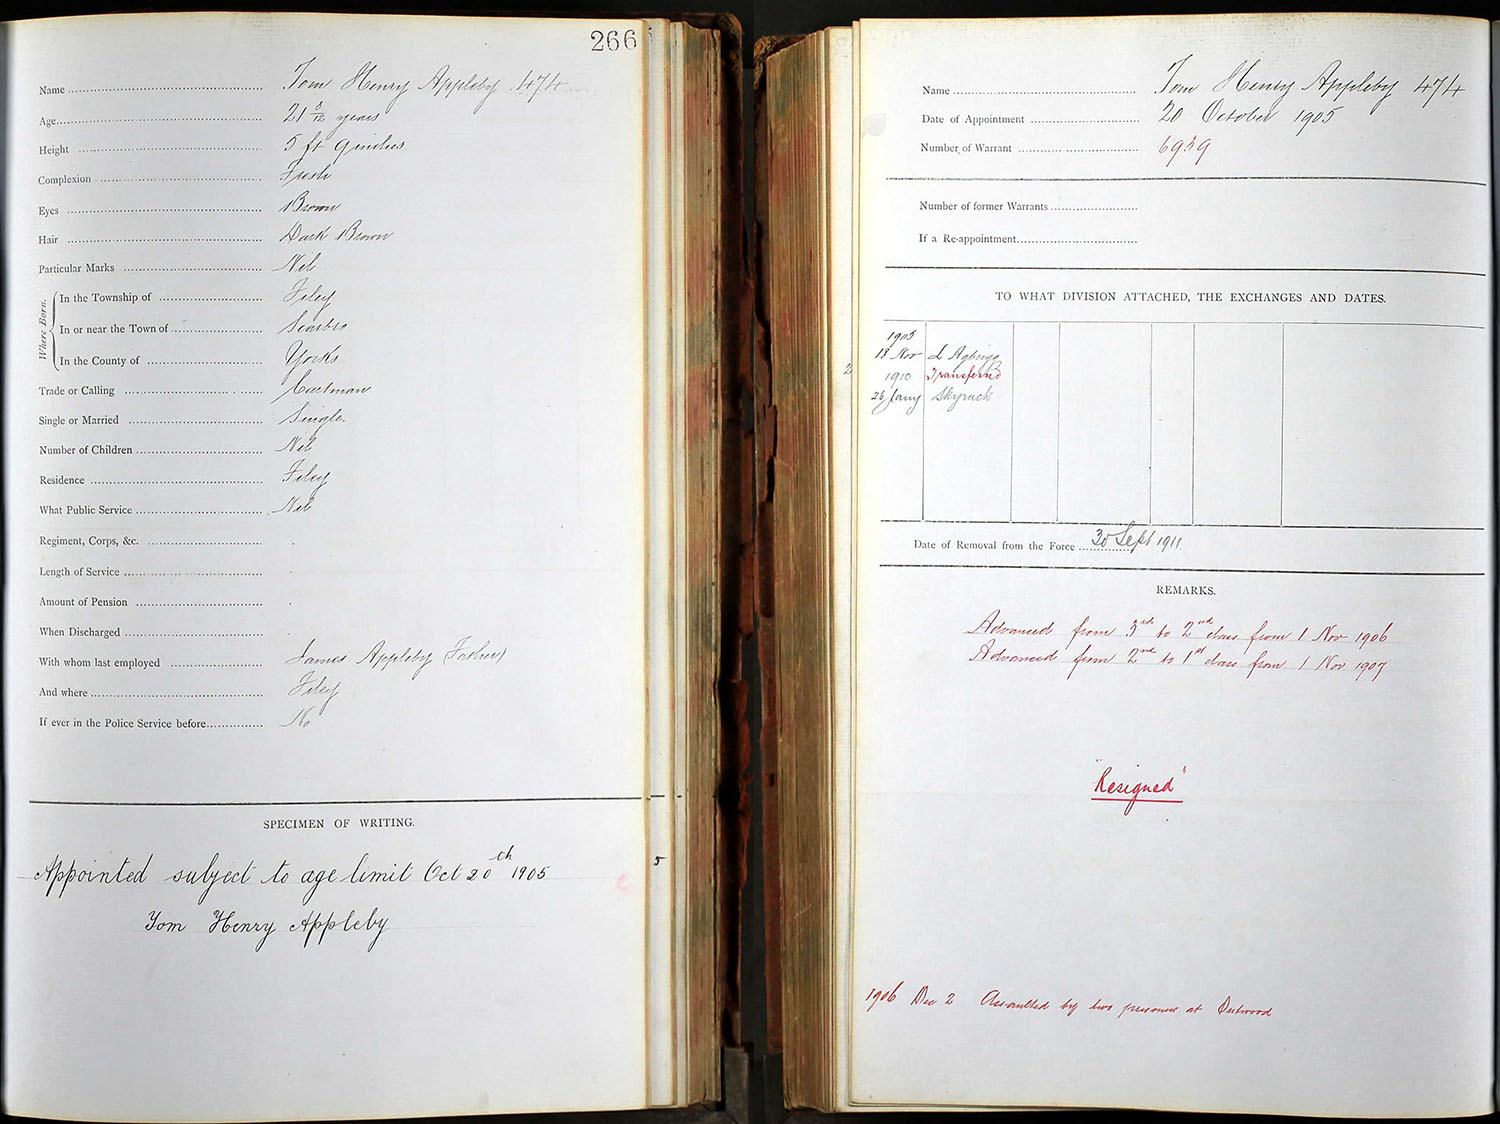 266
Name Tom Henry Appleby 474
Age 21 5/12 years
Height 5 ft 9 inches
Complexion Fresh
Eyes Brown
Hair Dark Brown
Particular Marks Nil
Where Born.
In the Township of Filey
In or near the Town of Scarbro
In the County of Yorks
Trade or Calling Cartman
Single or Married Single
Number of Children Nil
Residence Filey
What Public Service Nil
Regiment, Corps, &c.
Length of Service
Amount of Pension
When Discharged
With whom last employed James Appleby (Father)
And where Filey
If ever in the Police Service before No
SPECIMEN OF WRITING.
Appointed subject to age limit Oct 20th 1905
Tom Henry Appleby
5
Name Tom Henry Appleby 474
Date of Appointment 20 October 1905
Number of Warrant 6959
Number of former Warrants
If a Re-appointment
TO WHAT DIVISION ATTACHED, THE EXCHANGES AND DATES.
1905
18 Nov L Agbrigg
1910 Transferred
26 Jany Skyrack
2
Date of Removal from the Force 30 Sept 1911.
REMARKS.
Advanced from 3rd to 2nd class from 1 Nov 1906
Advanced from 2nd to 1st class from 1 Nov 1907
"Resigned"
1906 Dec 2 Assaulted by two prisoners at Outwood